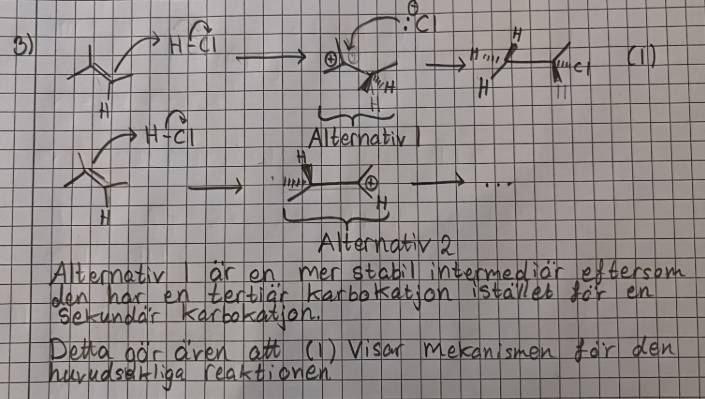 3)
H-Cl
⊕ :Cl
⊕
H
H
H
H
H
Cl
H
(1)
H
Alternativ 1
H-Cl
H
H
⊕
H
...
Alternativ 2
Alternativ 1 är en mer stabil intermediär eftersom
den har en tertiär karbokatjon istället för en
sekundär karbokatjon.
Detta gör även att (1) visar mekanismen för den
huvudsakliga reaktionen